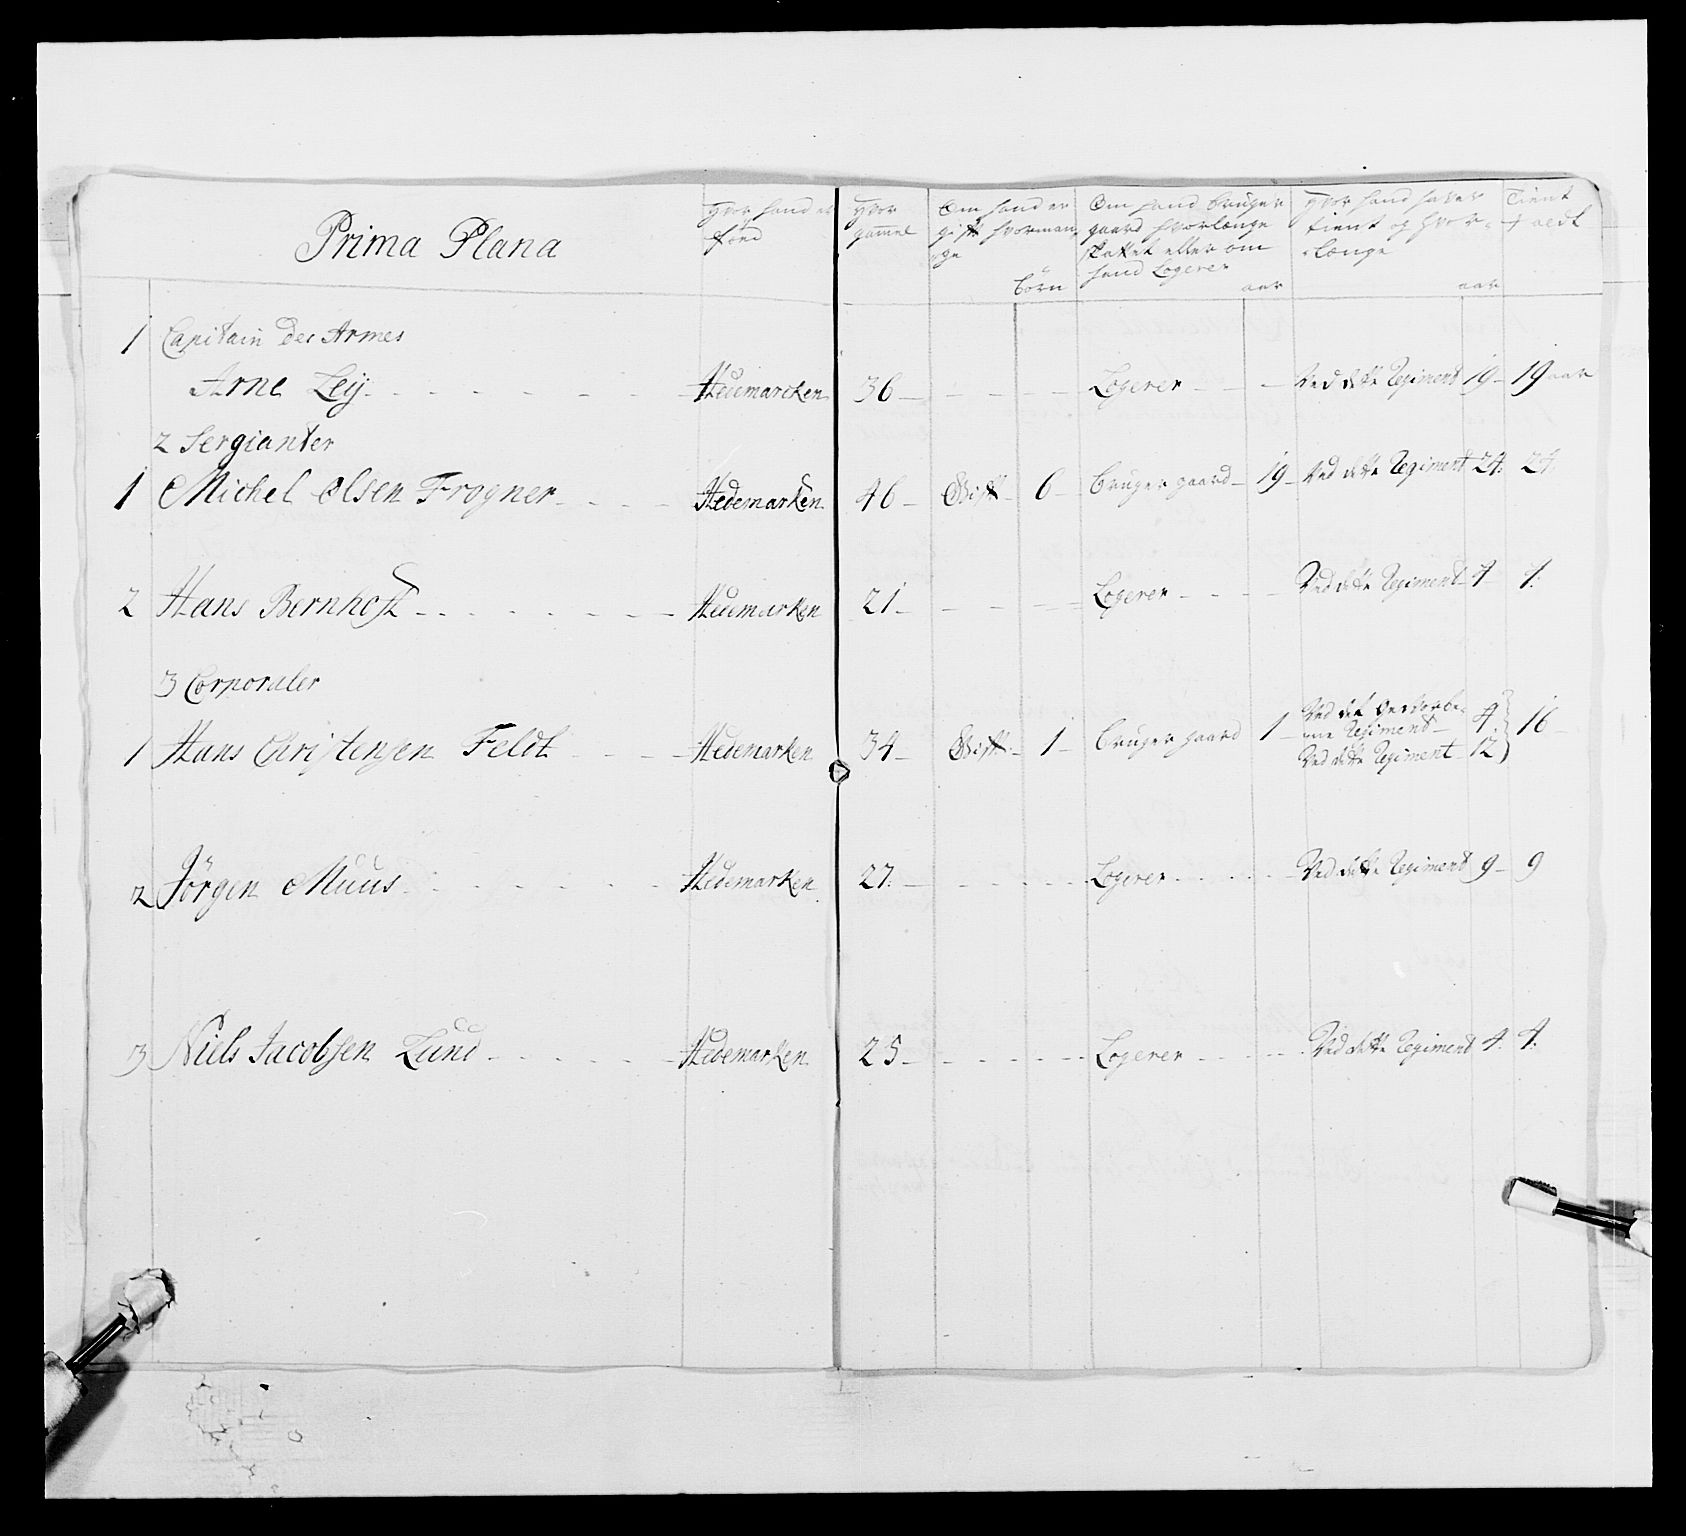 Prima Plana
Hvor hand er
föed
Hvor
gammel
Om hand er
gift hvorman
ge
börn
Om hand bruger
gaard hvorlænge
skattet eller om
hand Logerer
aar
Hvor hand haver
tient og hvor
længe
aar
Tient
1 Capitain des Armes
Arne Leij Hedemarcken 36 Logerer Ved dette Regiment 19 19 aar
2 Sergianter
1 Michel Olsen Frogner Hedemarken 46 Gift 6 bruger gaard 19 Ved dette Regiment 24 24
2 Hans Bernhoft Hedemarken 21 Logerer Ved dette Regiment 4 4
3 Corporaler
1 Hans Christensen Feldt Hedemarken 34 Gift 1 bruger gaard 1 Ved det 4 16
Regiment
Ved dette Regiment 12
2 Jörgen Muus Hedemarken 27 Logerer Ved dette Regiment 9 9
3 Niels Jacobsen Lund Hedemarken 25 Logerer Ved dette Regiment 4 4